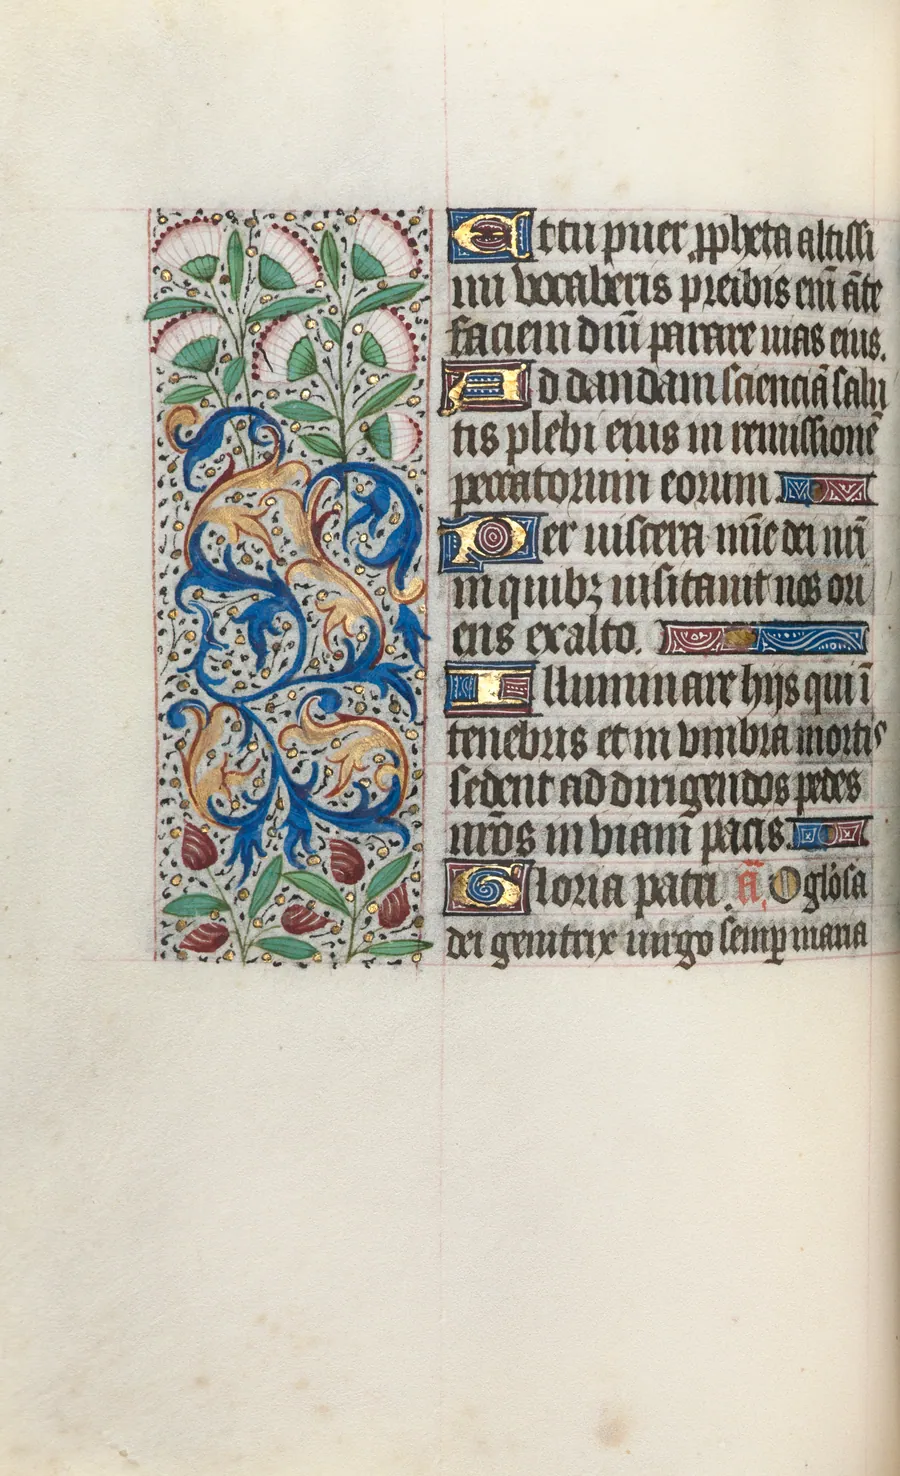 Et tu puer ꝓpheta altissi
mi vocaberis preibis eni᷒ āte
faciem dn̄i parare uias eius.
Ad dandam scienciā salu
tis plebi eius in remissionē
peccatorum eorum
Per uiscera mīe dei nr̄i
in quibꝫ uisitauit nos ori
ens exalto.
Illuminare hijs qui ī
tenebris et in vmbra mortis
sedent ad dirigendos pedes
nr̄os in viam pacis.
Gloria patri. ā. O gl̄osa
dei genitrix uirgo semꝑ maria